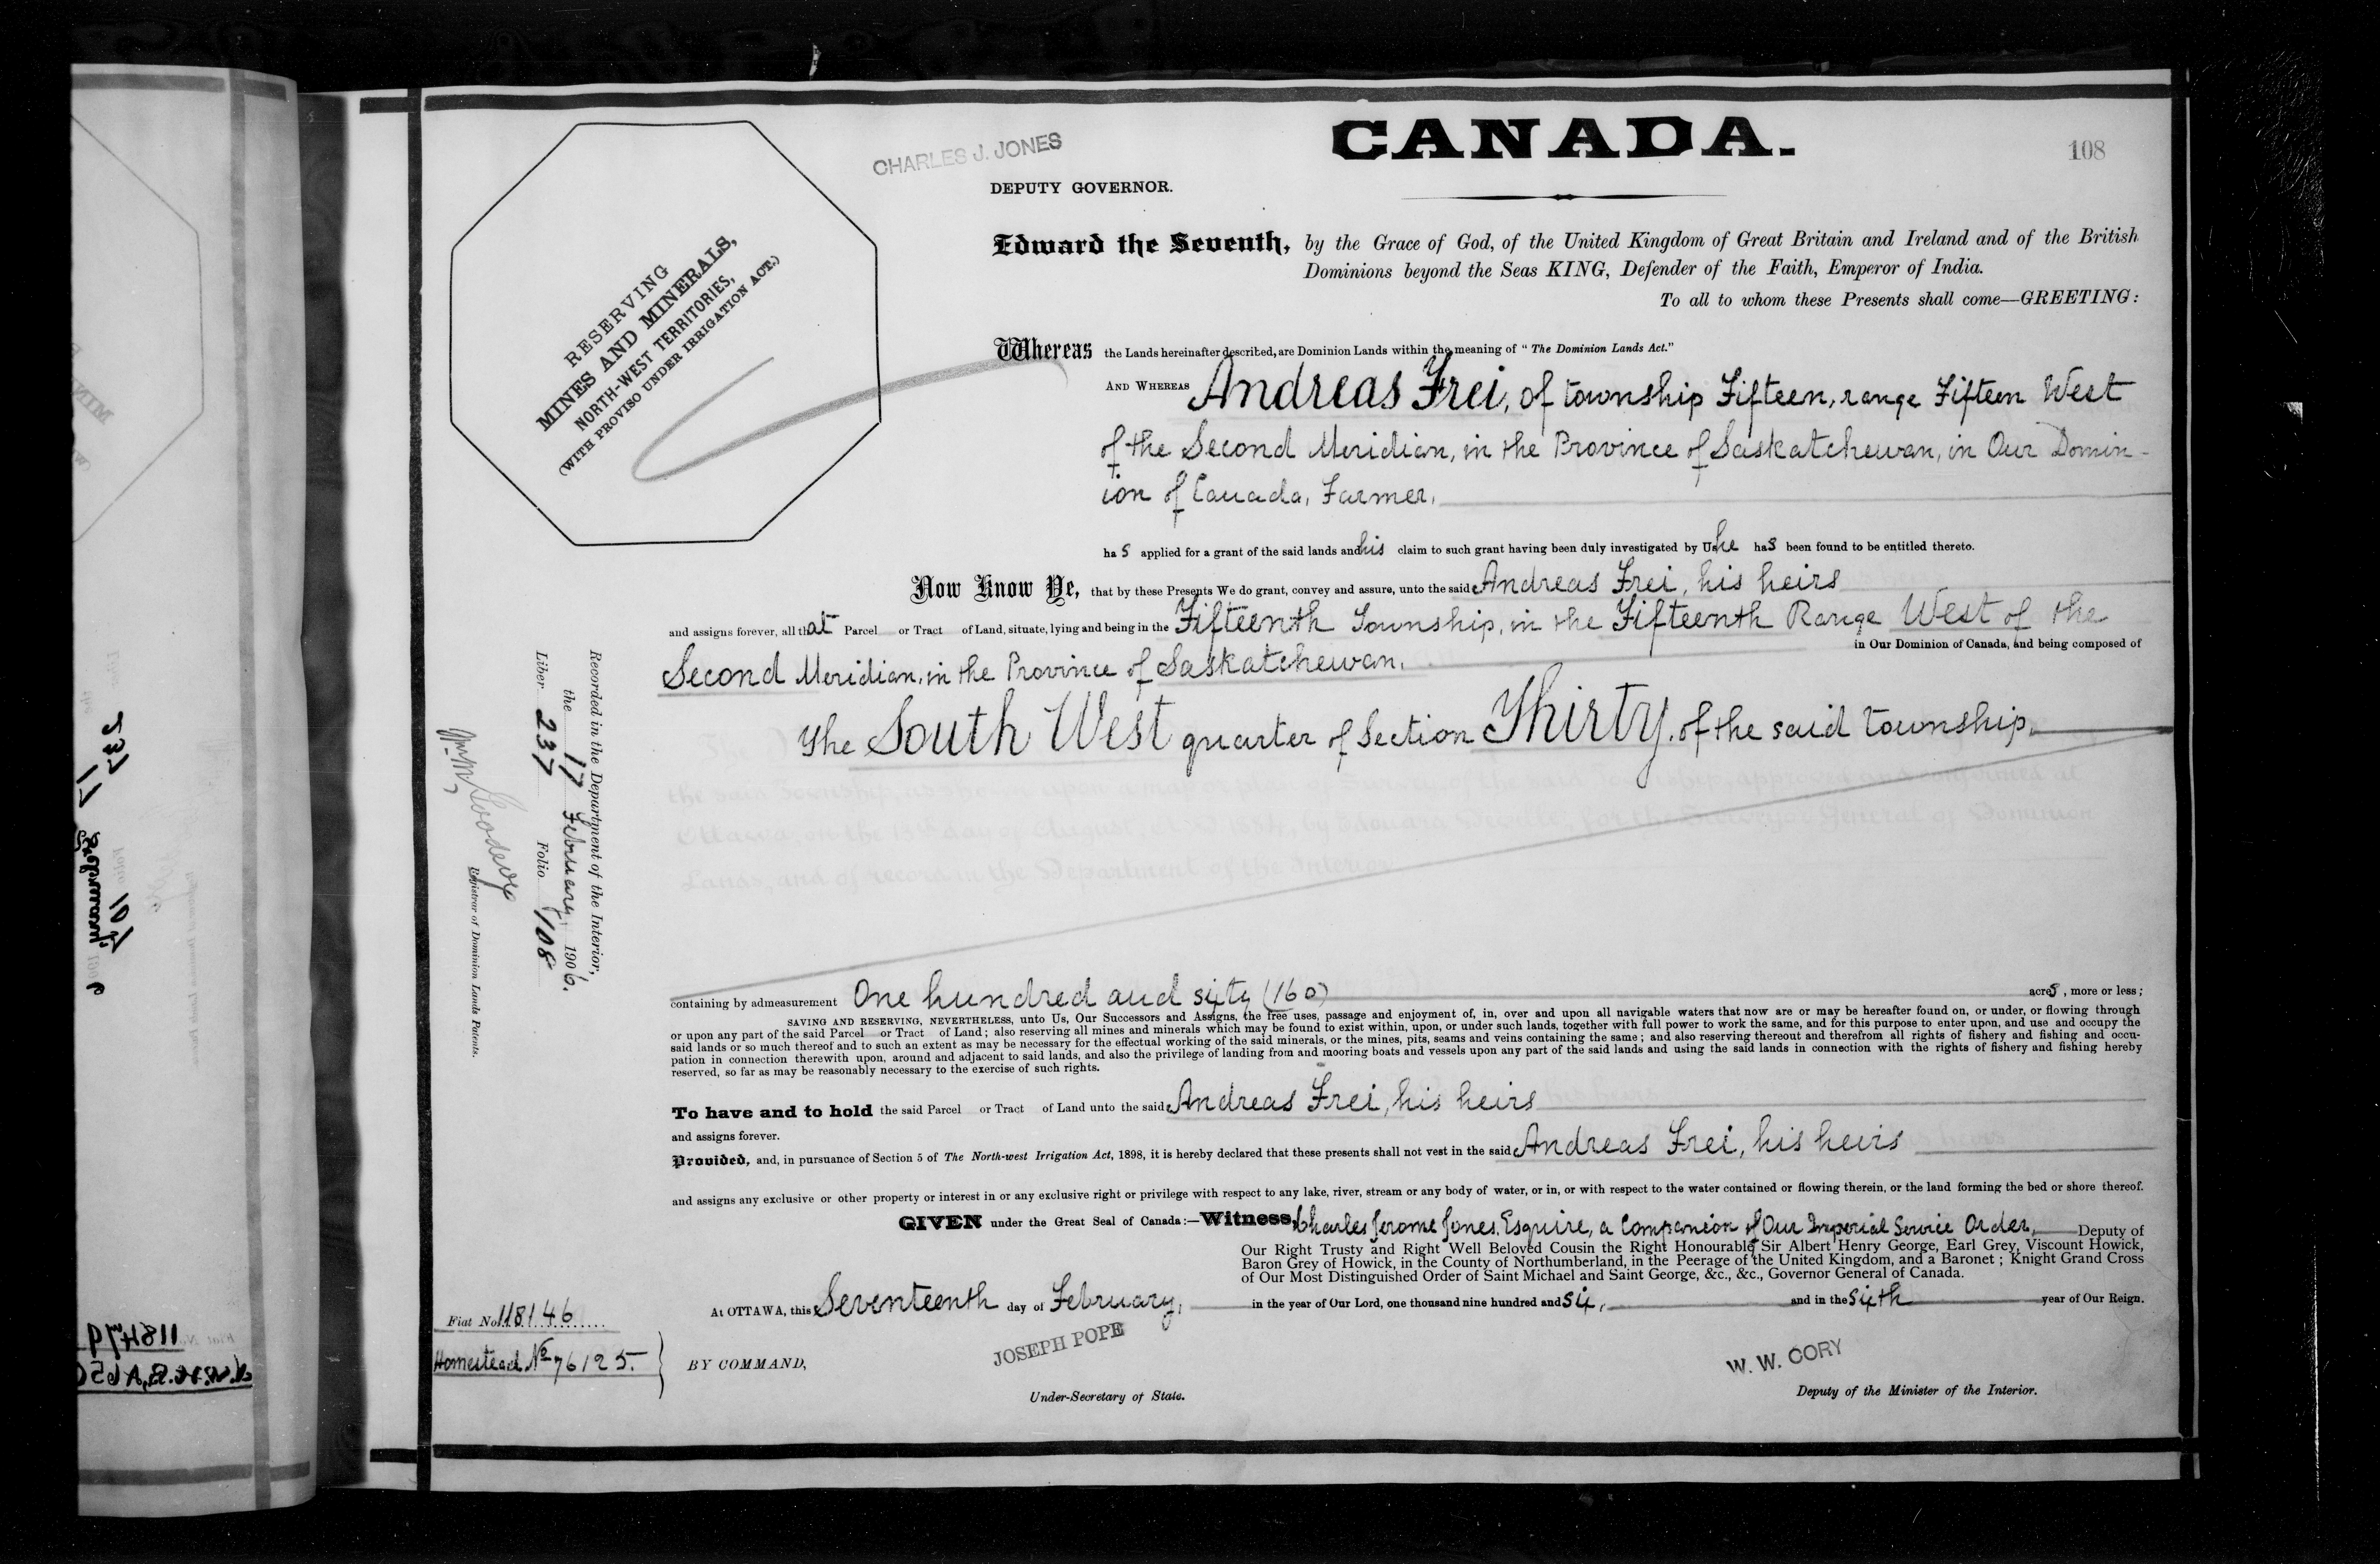 CANADA.
108
CHARLES J. JONES
DEPUTY GOVERNOR.
RESERVING
MINES AND MINERALS,
NORTH-WEST TERRITORIES,
(WITH PROVISO UNDER IRRIGATION ACT.)
Edward the Seventh, by the Grace of God, of the United Kingdom of Great Britain and Ireland and of the British
Dominions beyond the Seas KING, Defender of the Faith, Emperor of India.
To all to whom these Presents shall come—GREETING:
Whereas the Lands hereinafter described, are Dominion Lands within the meaning of "The Dominion Lands Act."
AND WHEREAS Andreas Frei, of township Fifteen, range Fifteen West
of the Second Meridian, in the Province of Saskatchewan, in Our Domin-
ion of Canada, Farmer,
has applied for a grant of the said lands and his claim to such grant having been duly investigated by Us he has been found to be entitled thereto.
Now Know Ye, that by these Presents We do grant, convey and assure, unto the said Andreas Frei, his heirs
and assigns forever, all that Parcel or Tract of Land, situate, lying and being in the Fifteenth Township, in the Fifteenth Range West of the
Second Meridian, in the Province of Saskatchewan, in Our Dominion of Canada, and being composed of
The South West quarter of Section Thirty, of the said township,
containing by admeasurement One hundred and sixty (160) acres, more or less;
SAVING AND RESERVING, NEVERTHELESS, unto Us, Our Successors and Assigns, the free uses, passage and enjoyment of, in, over and upon all navigable waters that now are or may be hereafter found on, or under, or flowing through
or upon any part of the said Parcel or Tract of Land; also reserving all mines and minerals which may be found to exist within, upon, or under such lands, together with full power to work the same, and for this purpose to enter upon, and use and occupy the
said lands or so much thereof and to such an extent as may be necessary for the effectual working of the said minerals, or the mines, pits, seams and veins containing the same; and also reserving thereout and therefrom all rights of fishery and fishing and occu-
pation in connection therewith upon, around and adjacent to said lands, and also the privilege of landing from and mooring boats and vessels upon any part of the said lands and using the said lands in connection with the rights of fishery and fishing hereby
reserved, so far as may be reasonably necessary to the exercise of such rights.
To have and to hold the said Parcel or Tract of Land unto the said Andreas Frei, his heirs
and assigns forever.
Provided, and, in pursuance of Section 5 of The North-west Irrigation Act, 1898, it is hereby declared that these presents shall not vest in the said Andreas Frei, his heirs
and assigns any exclusive or other property or interest in or any exclusive right or privilege with respect to any lake, river, stream or any body of water, or in, or with respect to the water contained or flowing therein, or the land forming the bed or shore thereof.
GIVEN under the Great Seal of Canada:—Witness, Charles Jerome Jones, Esquire, a Companion of Our Imperial Service Order, Deputy of
Our Right Trusty and Right Well Beloved Cousin the Right Honourable Sir Albert Henry George, Earl Grey, Viscount Howick,
Baron Grey of Howick, in the County of Northumberland, in the Peerage of the United Kingdom, and a Baronet; Knight Grand Cross
of Our Most Distinguished Order of Saint Michael and Saint George, &c., &c., Governor General of Canada.
At OTTAWA, this Seventeenth day of February, in the year of Our Lord, one thousand nine hundred and six, and in the sixth year of Our Reign.
BY COMMAND,
JOSEPH POPE
Under-Secretary of State.
W. W. CORY
Deputy of the Minister of the Interior.
Recorded in the Department of the Interior,
the 17 February, 1906.
Liber 237 Folio 108
Registrar of Dominion Lands Patents.
Fiat No. 118146
Homestead No 76125.